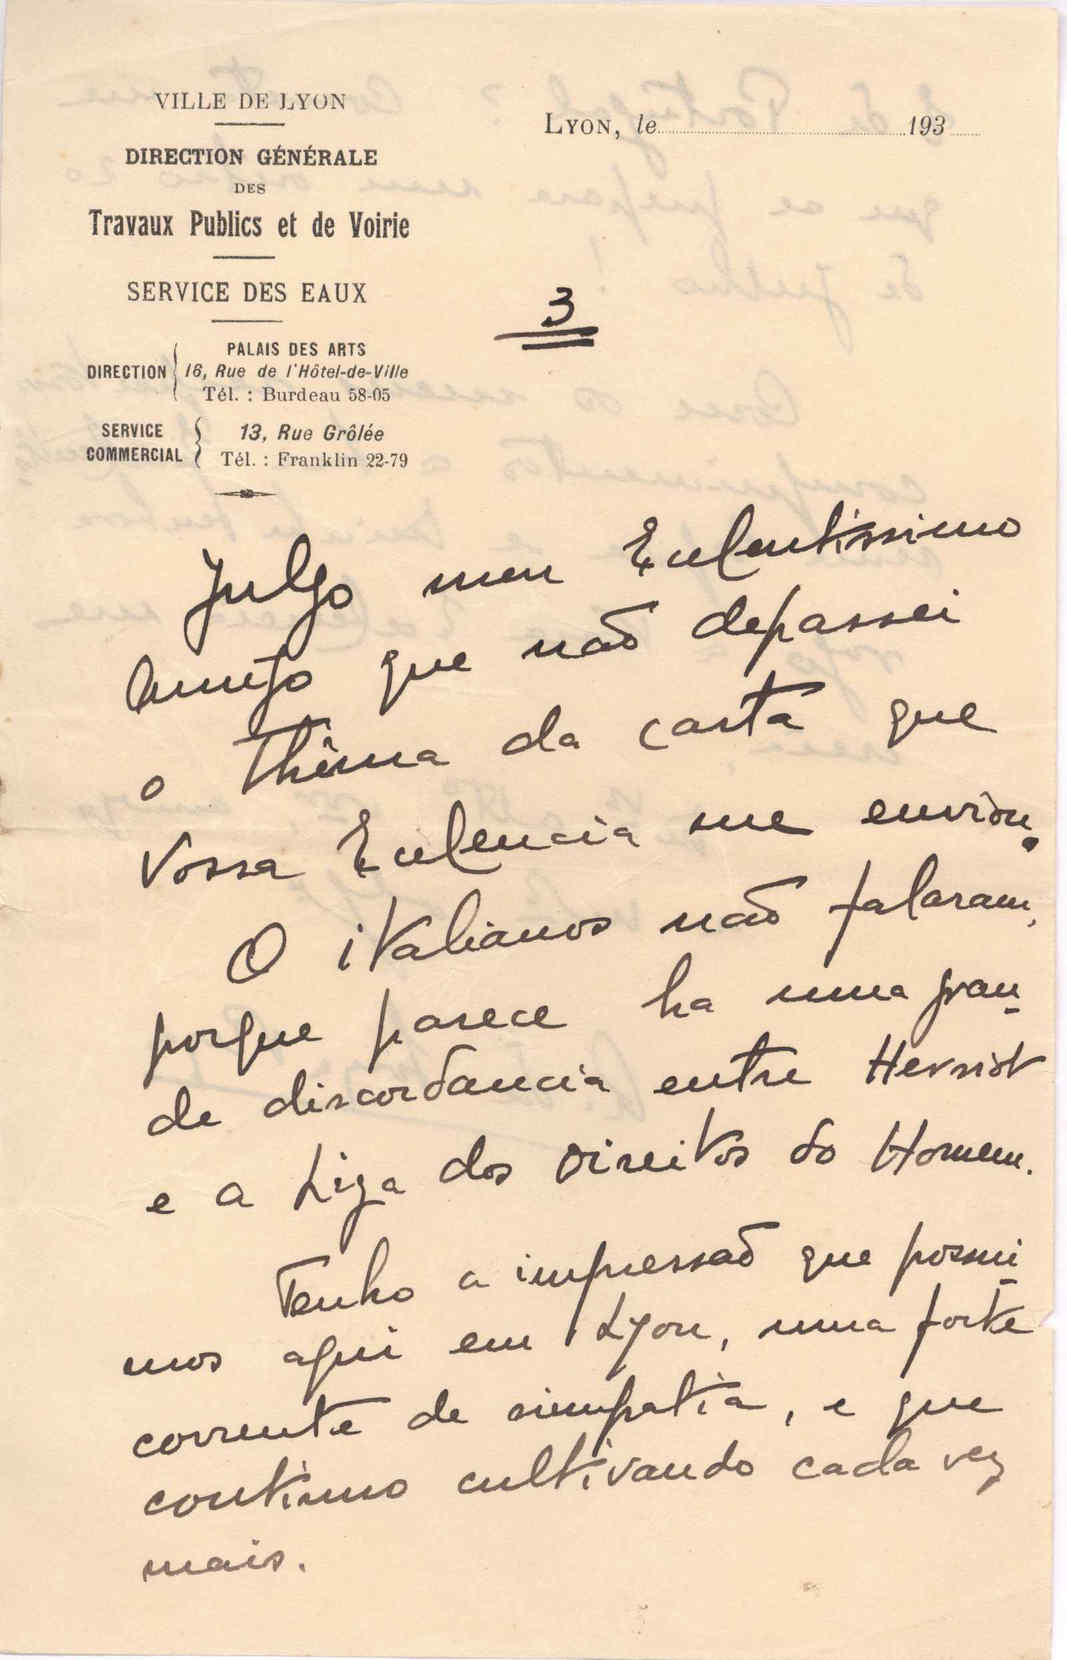 VILLE DE LYON
DIRECTION GÉNÉRALE
DES
Travaux Publics et de Voirie
SERVICE DES EAUX
DIRECTION { PALAIS DES ARTS
16, Rue de l'Hôtel-de-Ville
Tél. : Burdeau 58-05
SERVICE COMMERCIAL { 13, Rue Grôlée
Tél. : Franklin 22-79
LYON, le 193
3
Julgo meu Exelentissimo
Amigo que não depassei
o thêma da carta que
Vossa Exelencia me enviou.
O italianos não falaram,
porque parece ha uma gran-
de discordancia entre Herriot
e a Liga dos Direitos do Homem.
Tenho a impressão que possui-
mos aqui em Lyon, uma forte
corrente de simpatia, e que
continuo cultivando cada vez
mais.